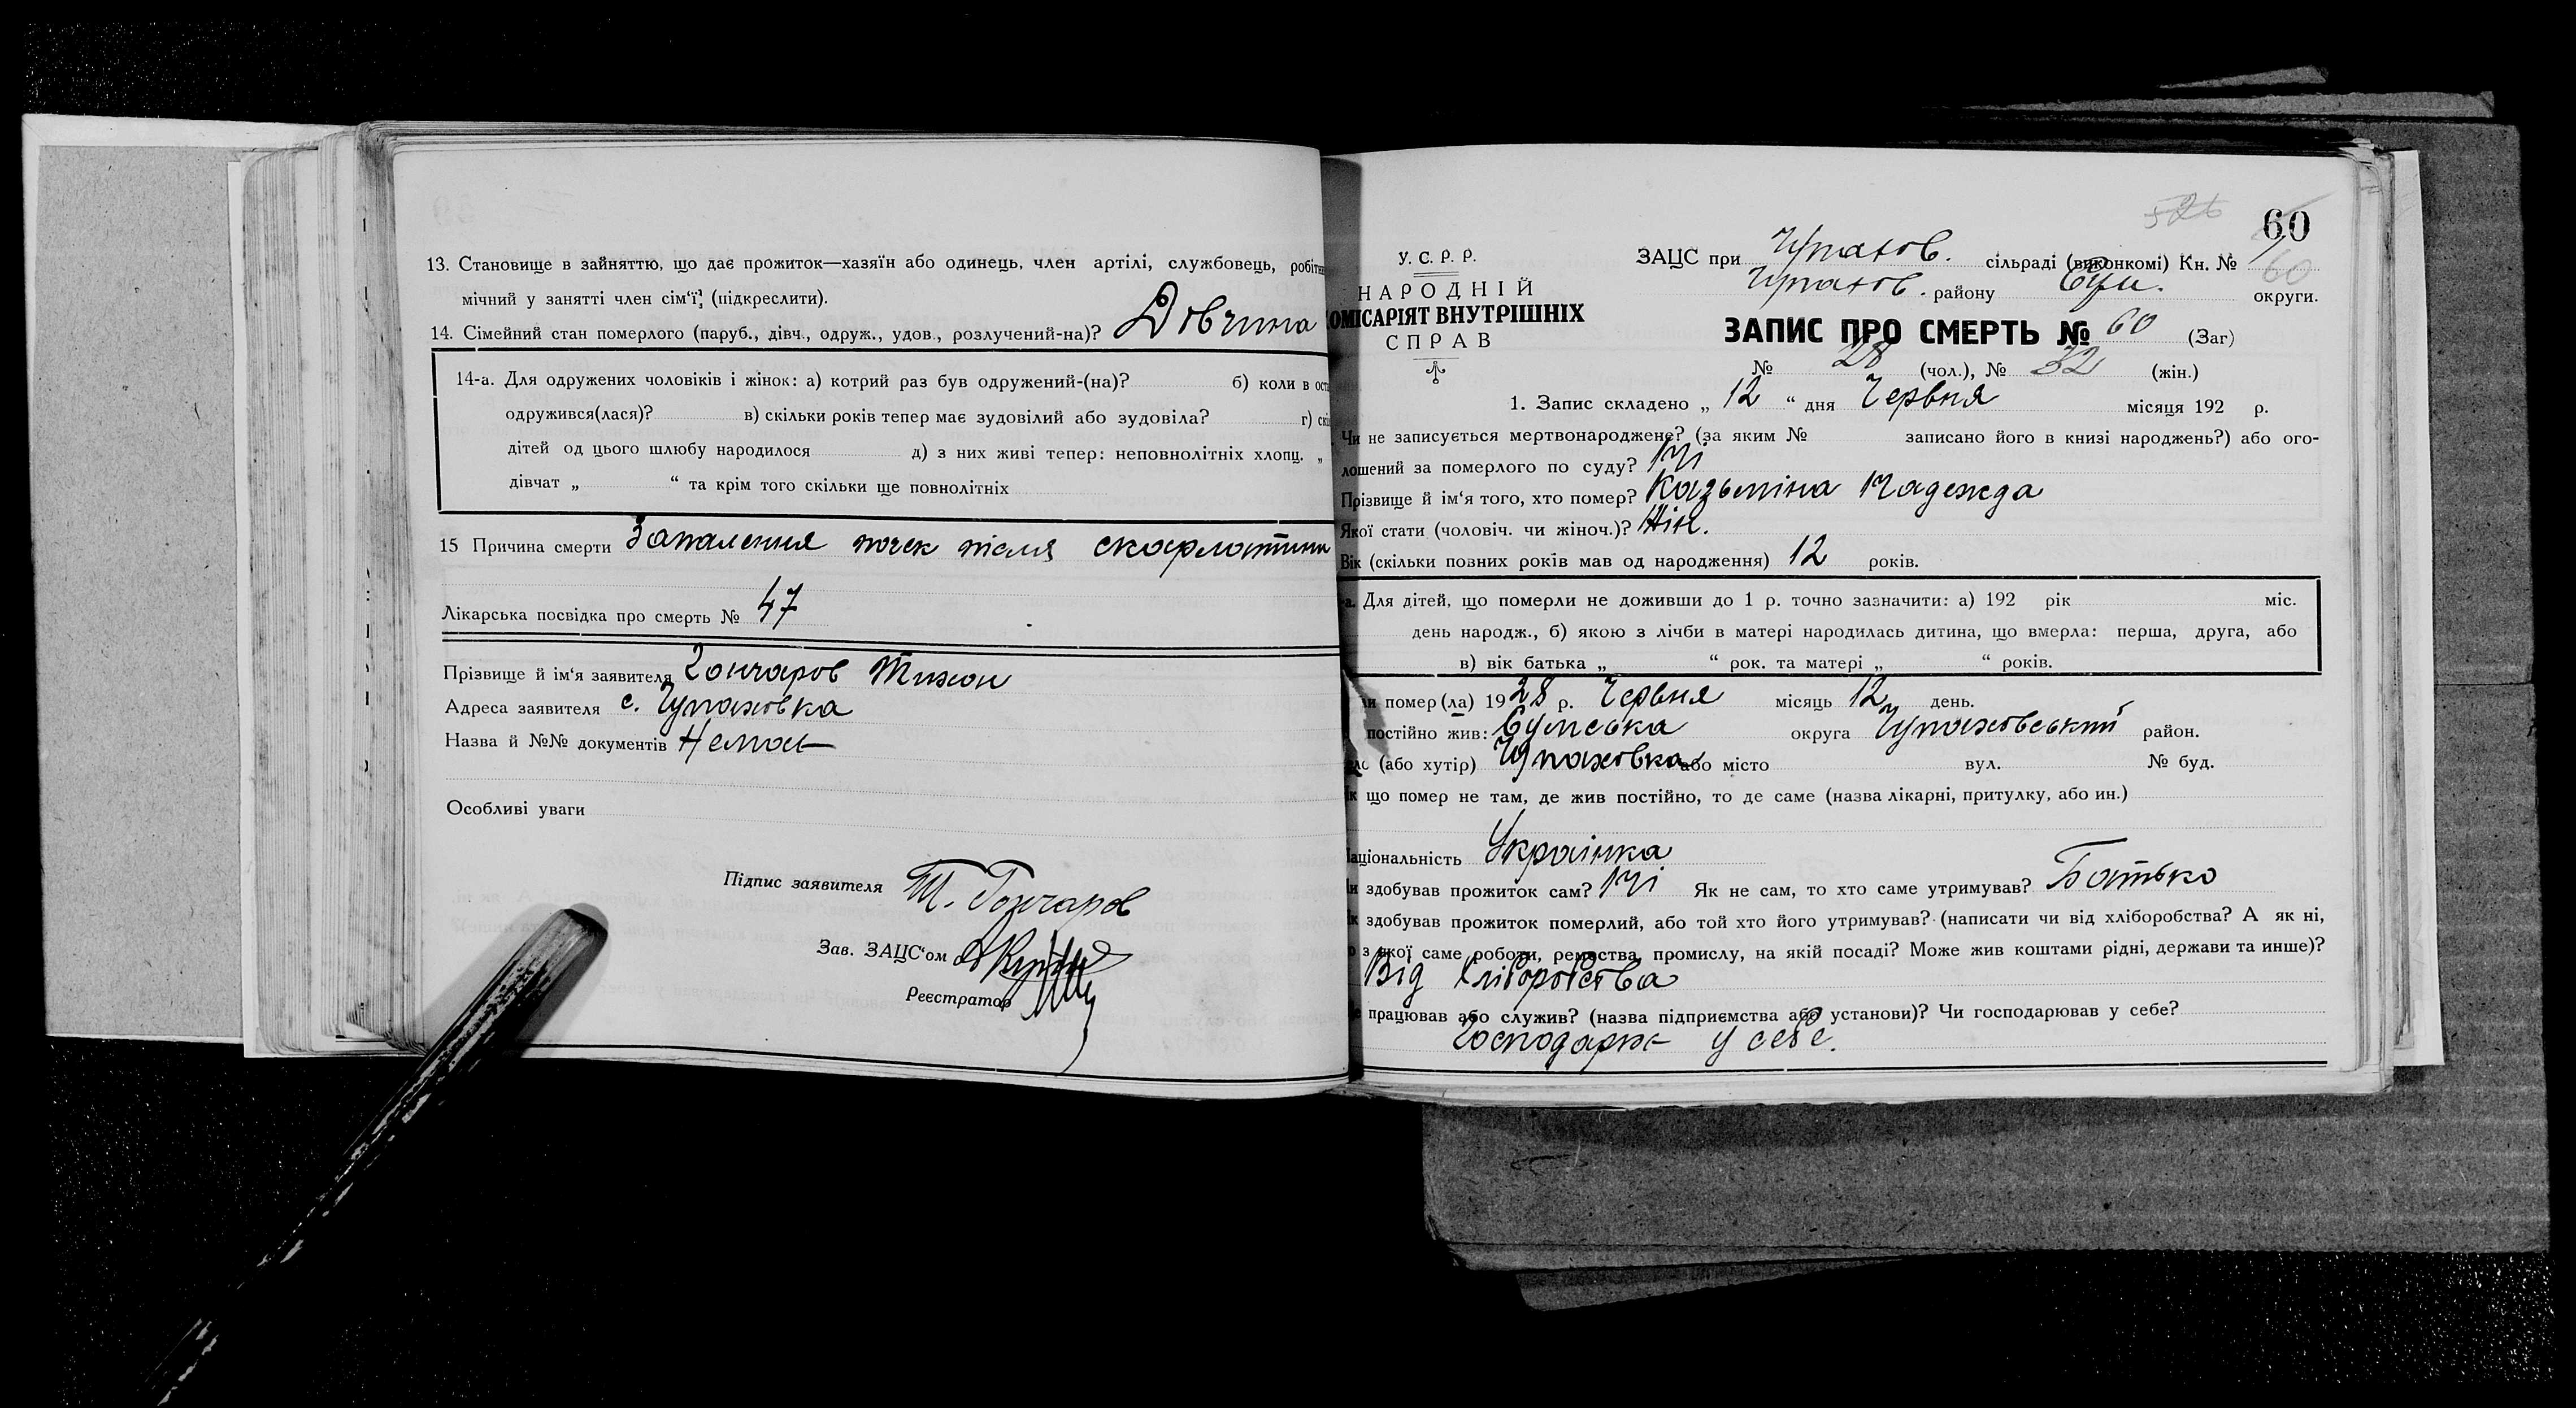 13. Становище в зайняттю, що дає прожиток—хазяїн або одинець, член артілі, службовець, робітн
мічний у занятті член сім'ї, (підкреслити).
14. Сімейний стан померлого (паруб., дівч., одруж., удов., розлучений-на)? Довчина
14-а. Для одружених чоловіків і жінок: а) котрий раз був одружений-(на)? б) коли в оста
одружився(лася)? в) скільки років тепер має зудовілий або зудовіла? г) скі
дітей од цього шлюбу народилося д) з них живі тепер: неповнолітніх хлопц. „
дівчат „ “ та крім того скільки ще повнолітніх
15 Причина смерти Запалення почек після скарлатини
Лікарська посвідка про смерть № 47
Прізвище й ім'я заявителя Гончаров Тихон
Адреса заявителя с. Чупаховка
Назва й №№ документів Немає
Особливі уваги
Підпис заявителя Т. Гончаров
Зав. ЗАЦС'ом
Реєстратор
526
60
У. С. Р. Р.
НАРОДНІЙ
ОМІСАРІЯТ ВНУТРІШНІХ
СПРАВ
ЗАЦС при Чупахов. сільраді (виконкомі) Кн. № 1
60
Чупахов. району Сум. округи.
ЗАПИС ПРО СМЕРТЬ № 60 (Заг)
№ 28 (чол.), № 32 (жін.)
1. Запис складено „ 12 “ дня Червня місяця 192 р.
Чи не записується мертвонароджене? (за яким № записано його в книзі народжень?) або ого-
лошений за померлого по суду? Ні
Прізвище й ім'я того, хто помер? Казьміна Надежда
Якої стати (чоловіч. чи жіноч.)? Жін.
Вік (скільки повних років мав од народження) 12 років.
а. Для дітей, що померли не доживши до 1 р. точно зазначити: а) 192 рік міс.
день народж., б) якою з лічби в матері народилась дитина, що вмерла: перша, друга, або
в) вік батька „ “ рок. та матері „ “ років.
ли помер (ла) 1928 р. Червня місяць 12 день.
постійно жив: Сумська округа Чупаховський район.
ло (або хутір) Чупаховка або місто вул. № буд.
к що помер не там, де жив постійно, то де саме (назва лікарні, притулку, або ин.)
аціональність Українка
и здобував прожиток сам? Ні Як не сам, то хто саме утримував? Батько
к здобував прожиток померлий, або той хто його утримував? (написати чи від хліборобства? А як ні,
о з якої саме роботи, ремества, промислу, на якій посаді? Може жив коштами рідні, держави та инше)?
Від хліборобства
е працював або служив? (назва підприємства або установи)? Чи господарював у себе?
Господарює у себе.